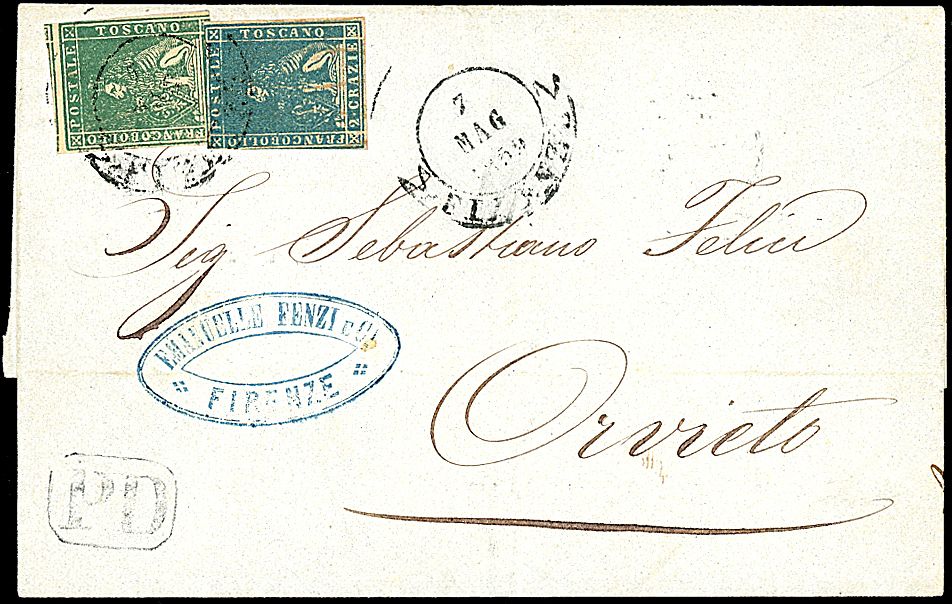 TOSCANO
POSTALE
FRANCOBOLLO
TOSCANO
POSTALE
2 CRAZIE
FRANCOBOLLO
7
MAG
FIRENZE
Sig Sebastiano Felici
EMANUELLE FENZI e C.
FIRENZE
Orvieto
PD